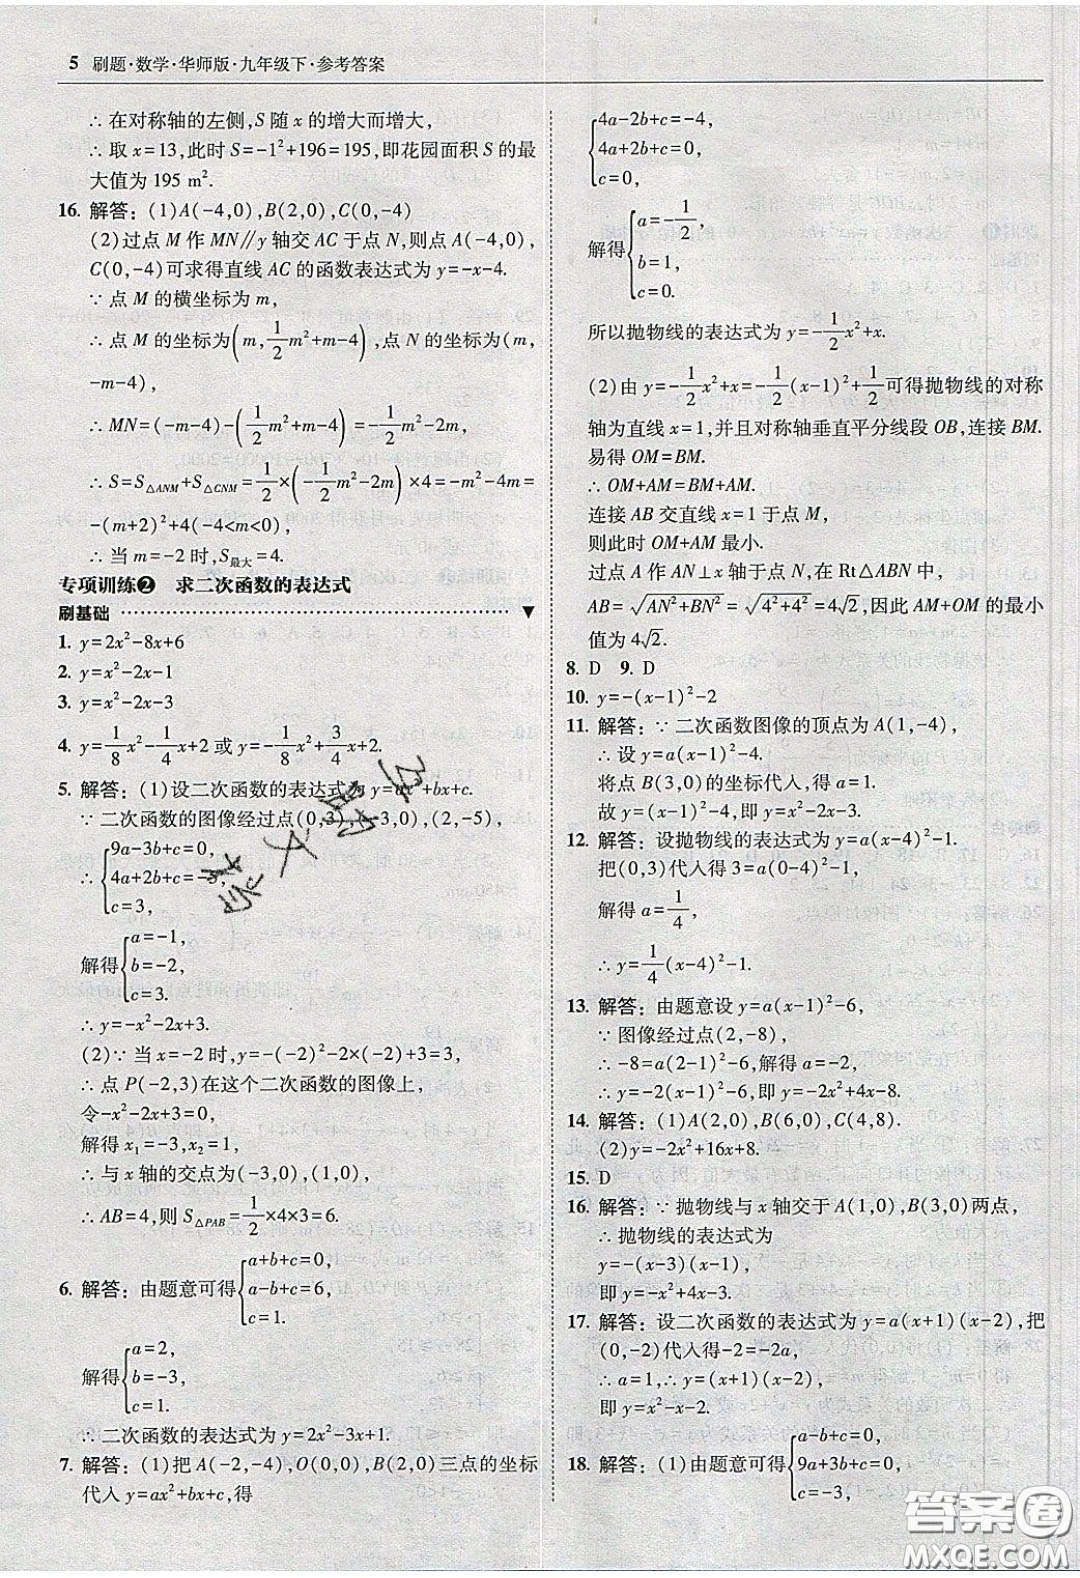 5 刷题·数学·华师版·九年级下·参考答案
∴在对称轴的左侧,S 随 x 的增大而增大,
∴取 x=13,此时 S=-1²+196=195,即花园面积 S 的最
大值为 195 m².
16. 解答：(1)A(-4,0),B(2,0),C(0,-4)
(2)过点 M 作 MN//y 轴交 AC 于点 N,则点 A(-4,0),
C(0,-4)可求得直线 AC 的函数表达式为 y=-x-4.
∵点 M 的横坐标为 m,
∴点 M 的坐标为(m,1/2m²+m-4),点 N 的坐标为(m,
-m-4),
∴MN=(-m-4)-(1/2m²+m-4)=-1/2m²-2m,
∴S=S△ANM+S△CNM=1/2×(-1/2m²-2m)×4=-m²-4m=
-(m+2)²+4(-4<m<0),
∴当 m=-2 时,S最大=4.
专项训练❷ 求二次函数的表达式
刷基础
1. y=2x²-8x+6
2. y=x²-2x-1
3. y=x²-2x-3
4. y=1/8x²-1/4x+2 或 y=-1/8x²+3/4x+2.
5. 解答：(1)设二次函数的表达式为 y=ax²+bx+c.
∵二次函数的图像经过点(0,3),(-3,0),(2,-5),
∴{9a-3b+c=0,
4a+2b+c=-5,
c=3,
解得{a=-1,
b=-2,
c=3.
∴y=-x²-2x+3.
(2)∵当 x=-2 时,y=-(-2)²-2×(-2)+3=3,
∴点 P(-2,3)在这个二次函数的图像上,
令-x²-2x+3=0,
解得 x₁=-3,x₂=1,
∴与 x 轴的交点为(-3,0),(1,0),
∴AB=4,则 S△PAB=1/2×4×3=6.
6. 解答：由题意可得{a+b+c=0,
a-b+c=6,
c=1.
解得{a=2,
b=-3,
c=1.
∴二次函数的表达式为 y=2x²-3x+1.
7. 解答：(1)把 A(-2,-4),O(0,0),B(2,0)三点的坐标
代入 y=ax²+bx+c,得
{4a-2b+c=-4,
4a+2b+c=0,
c=0,
解得{a=-1/2,
b=1,
c=0.
所以抛物线的表达式为 y=-1/2x²+x.
(2)由 y=-1/2x²+x=-1/2(x-1)²+1/2可得抛物线的对称
轴为直线 x=1,并且对称轴垂直平分线段 OB,连接 BM.
易得 OM=BM.
∴OM+AM=BM+AM.
连接 AB 交直线 x=1 于点 M,
则此时 OM+AM 最小.
过点 A 作 AN⊥x 轴于点 N,在 Rt△ABN 中,
AB=√(AN²+BN²)=√(4²+4²)=4√2,因此 AM+OM 的最小
值为 4√2.
8. D 9. D
10. y=-(x-1)²-2
11. 解答：∵二次函数图像的顶点为 A(1,-4),
∴设 y=a(x-1)²-4.
将点 B(3,0)的坐标代入,得 a=1.
故 y=(x-1)²-4,即 y=x²-2x-3.
12. 解答：设抛物线的表达式为 y=a(x-4)²-1.
把(0,3)代入得 3=a(0-4)²-1.
解得 a=1/4,
∴y=1/4(x-4)²-1.
13. 解答：由题意设 y=a(x-1)²-6,
∵图像经过点(2,-8),
∴-8=a(2-1)²-6,解得 a=-2,
∴y=-2(x-1)²-6,即 y=-2x²+4x-8.
14. 解答：(1)A(2,0),B(6,0),C(4,8).
(2)y=-2x²+16x+8.
15. D
16. 解答：∵抛物线与 x 轴交于 A(1,0),B(3,0)两点,
∴抛物线的表达式为
y=-(x-3)(x-1),
即 y=-x²+4x-3.
17. 解答：设二次函数的表达式为 y=a(x+1)(x-2),把
(0,-2)代入得-2=-2a,
∴a=1,∴y=(x+1)(x-2),
即 y=x²-x-2.
18. 解答：(1)由题意可得{a-b+c=0,
9a+3b+c=0,
c=-3,
答案圈
MXQE.COM